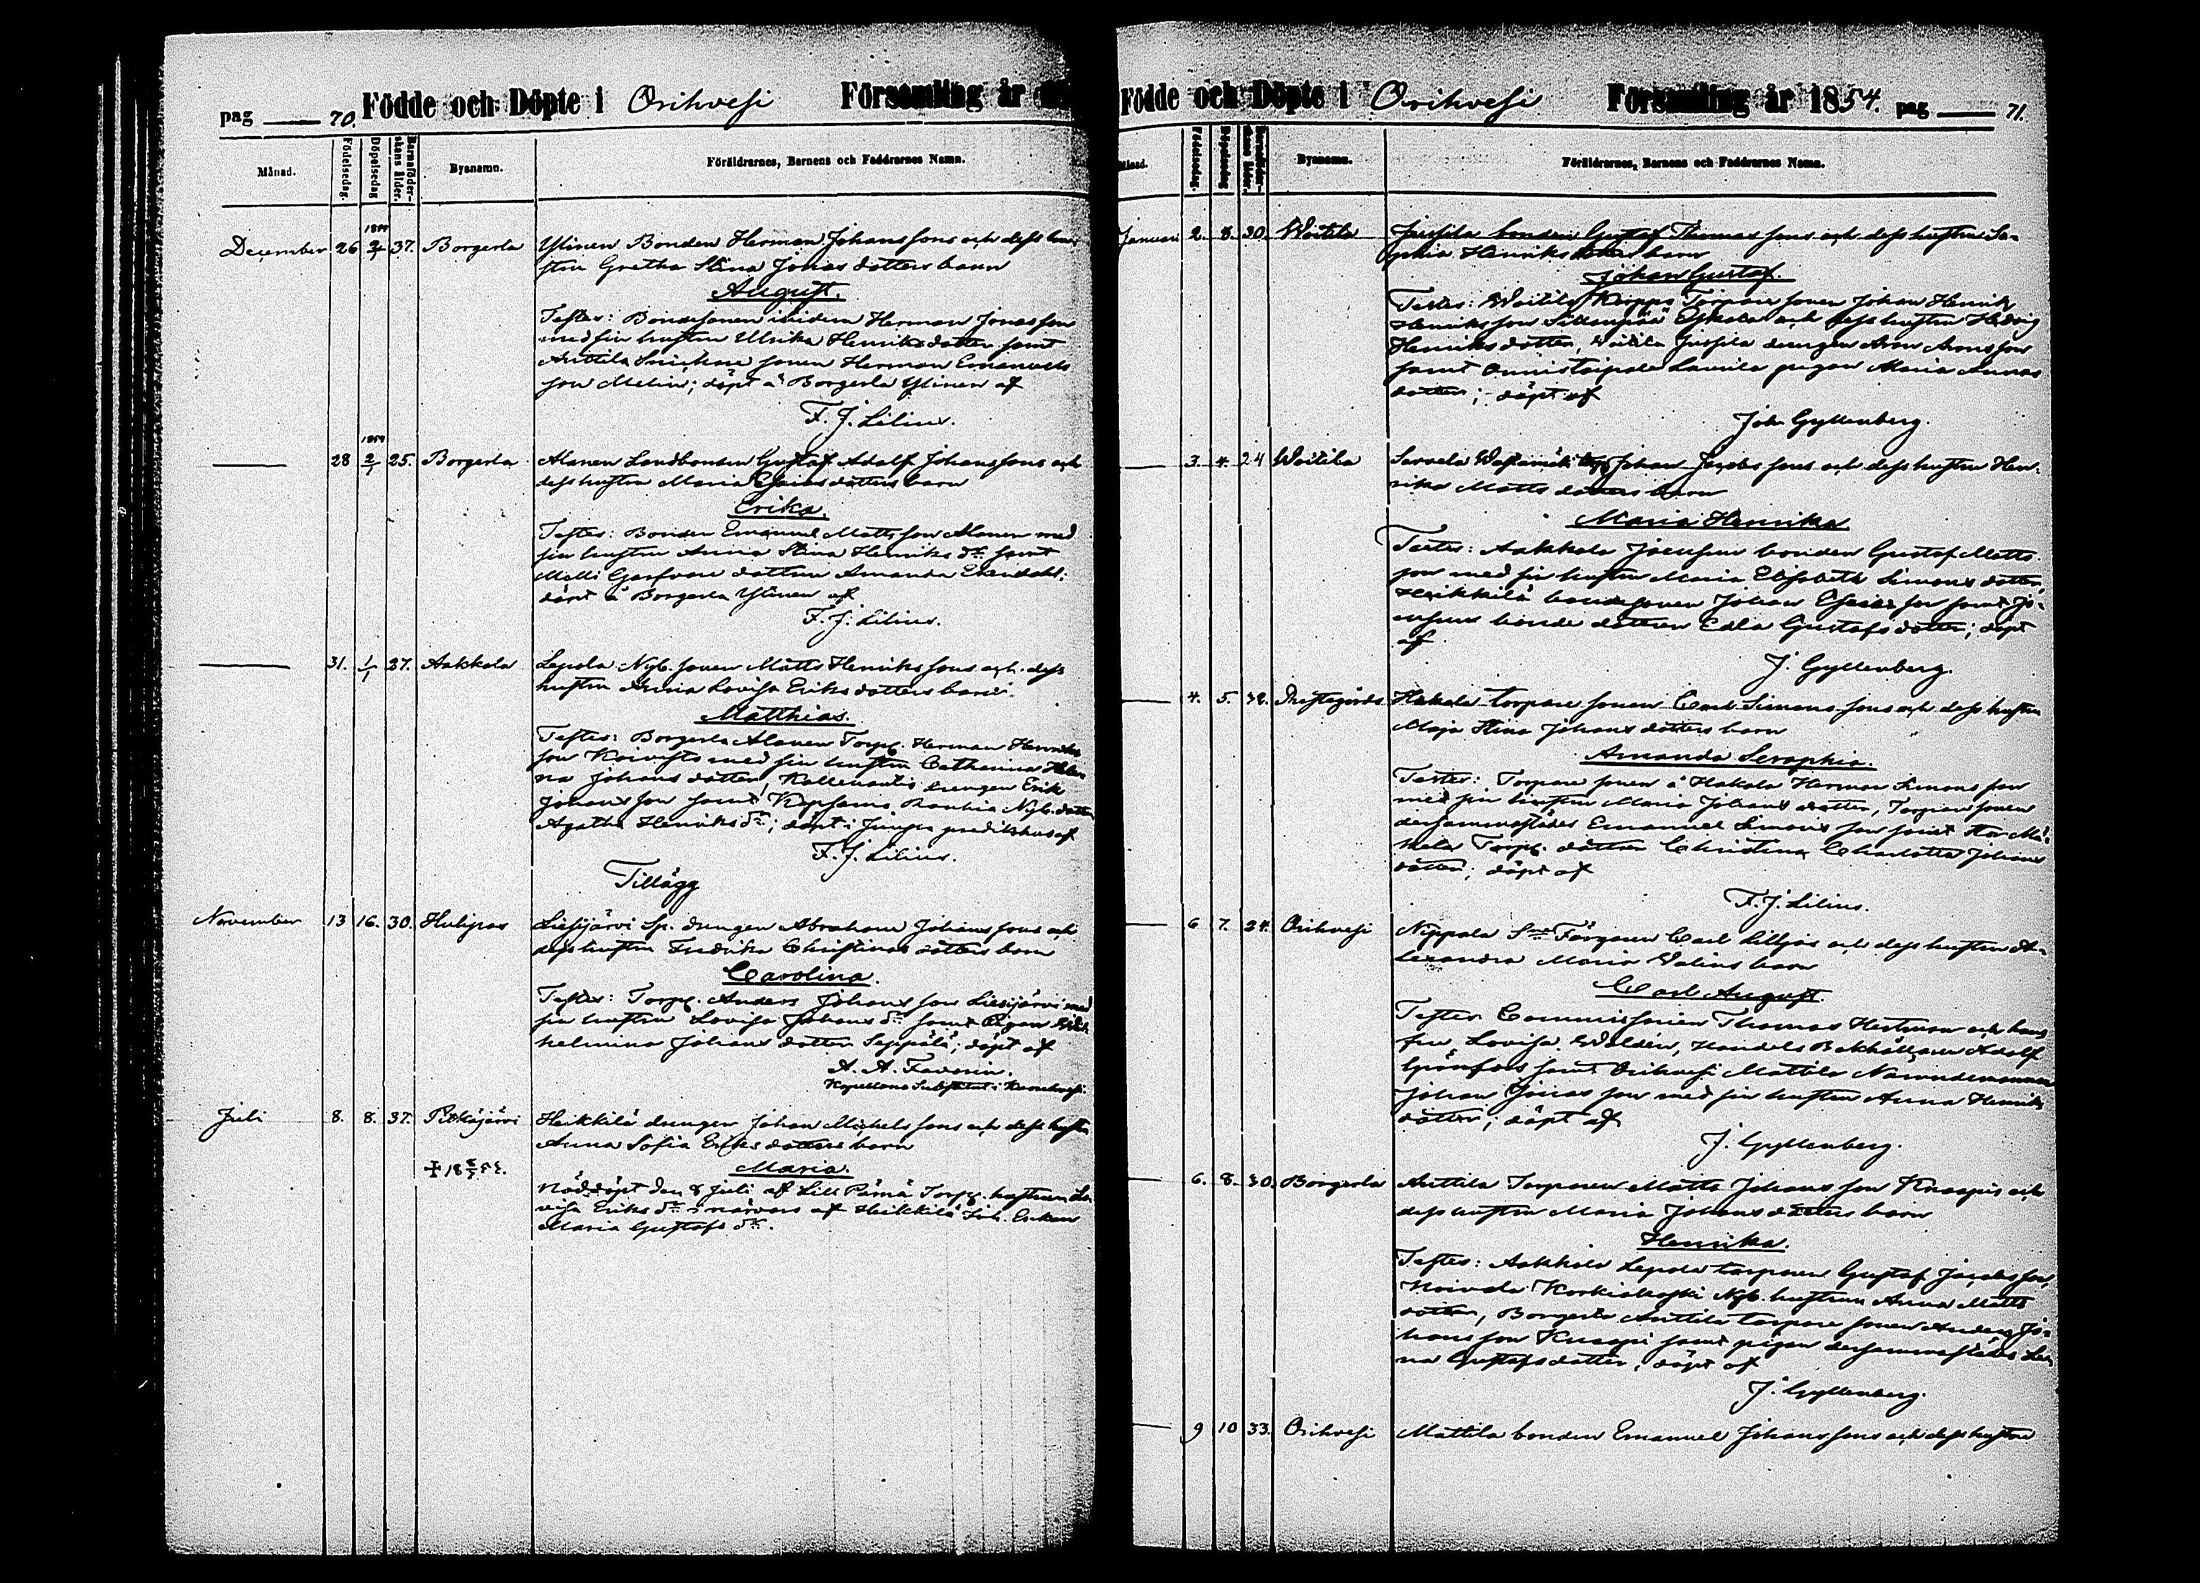 pag 70. Födde och Döpte i Orihvesi Församling år
Månad. Födelsedag. Döpelsedag Barnaföderskans ålder. Bysnamn. Föräldrarnes, Barnens och Faddrarnes Namn.
December 26 1854 2/1 37. Borgerla Ylinen Bonden Herman Johans sons och dess hu-
strn Gretha Stina Jonas dotters barn
August.
Testes: Bondesonen Herman Jonas son
med sin hustru Ulrika Henriks dotter samt
Anttila Snickare sonen Herman Emanuels
son Melin; döpt å Borgerla Ylinen af
F. J. Lilius.
28 1854 2/1 25. Borgerla Alanen Landbonden Gustaf Adolf Johans sons och
dess hustru Maria Esaias dotters barn
Erika.
Testes: Bonden Emanuel Matts son Alanen med
sin hustru Anna Stina Henriks dr samt
Garfvare dottren Amanda Ekendahl;
döpt å Borgerla Ylinen af
F. J. Lilius.
31. 1/1 27. Aakkola Lepola Nyb. sonen Matts Henriks sons och dess
hustru Anna Lovisa Eriks dotters barn
Matthias.
Testes: Borgerla Alanen Torp. Herman Henriks
son Koivisto med sin hustru Catharina Hele-
na Johans dotter, drengen Erik
Johans son samt Rauhia Nyb. dotter
Agatha Henriks dr; döpt i predikohus af
F. J. Lilius.
Tillägg
November 13 16. 30. Huhpas Liesijärvi Sp. drengen Abraham Johans sons och
dess hustru Fredrika Christinas dotters barn
Carolina.
Testes: Torp. Anders Johans son Liesijärvi med
sin hustru Lovisa Johans dr samt Pigan Vil-
helmina Johans dotter Seppälä; döpt af
A. A. Favorin.
Kapellans Substitut i Kuorehvesi
Juli 8. 8. 37. Pitkäjärvi Heikkilä drengen Johan Michels sons och dess hustru
Anna Sofia Eriks dotters barn
Maria.
Nöddöpt den 8 Juli af Lill Pämä Torp. hustrun Lo-
visa Eriks dr i närvaro af Heikkilä Enkan
Maria Gustafs dr.
Födde och Döpte i Orihvesi Församling år 1854. pag 71.
Månad. Födelsedag. Döpelsedag Barnaföderskans ålder. Bysnamn. Föräldrarnes, Barnens och Faddrarnes Namn.
Januari 2. 8. 30. Woitila Jussila bonden Gustaf Thomas sons och dess hustru So-
phia Henriks dotters barn
Johan Gustaf.
Testes: Woitila Korppi Torpare sonen Johan Henrik
Henriks son och dess hustru Hedvig
Henriks dotter, Woitila Jussila drengen Aron Arons son
samt Onnistaipale Laurila pigan Maria
dotter; döpt af
Joh. Gyllenberg.
3. 4. 24 Woitila Johan Jacobs sons och dess hustru Hen-
rika Matts dotters barn
Maria Henrika
Testes: Aakkola Jaensuu bonden Gustaf Matts
son med sin hustru Maria Elisabeth Simons dotter,
Heikkilä bondesonen Johan Esaias son samt Ja-
ensuu bonde dottren Edla Gustafs dotter; döpt
af
J. Gyllenberg.
4. 5. 38. Prestegårds Hakala torpare sonen Carl Simons sons och dess hustru
Maja Stina Johans dotters barn
Amanda Seraphia.
Testes: Torpare sonen å Hakala Herman Simons son
med sin hustru Maria Johans dotter, Torparesonen
dersammastädes Emanuel Simons son samt
Torp. dottren Christina Charlotta Johans
dotter; döpt af
F. J. Lilius.
6 7. 24. Orihvesi Nappala Färgaren Carl Lilljas och dess hustru A-
lexandra Maria Valins barn
Carl August.
Testes: Commissarien Thomas Hartman och hans
fru Lovisa Waldén, Handels Bokhållaren Adolf
Grönfors samt Orihvesi Mattila
Johan Jonas son med sin hustru Anna Henriks
dotter; döpt af
J. Gyllenberg.
6. 8. 30. Borgerla Anttila Torparen Matts Johans son Knaapis och
dess hustru Maria Johans dotters barn
Henrika.
Testes: Aakkola Lepola torparen Gustaf Jacobs son,
Koivula Korkiakoski Nyb. hustrun Anna Matts
dotter, Borgerla Anttila torpare sonen Anders Jo-
hans son Knaapi samt pigan dersammastädes Le-
na Gustafs dotter; döpt af
J. Gyllenberg.
9 10 33. Orihvesi Mattila bonden Emanuel Johans sons och dess hustru